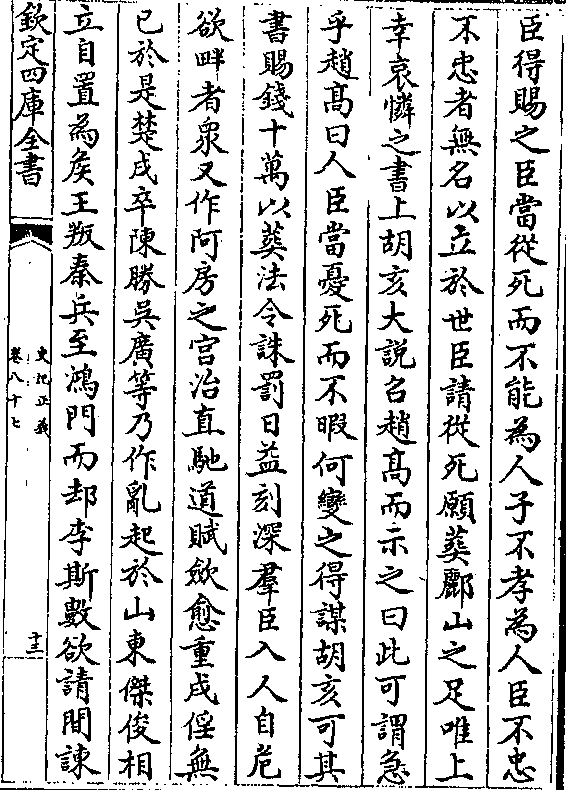 臣得賜之臣當從死而不能為人子不孝為人臣不忠
不忠者無名以立於世臣請從死願葬酈山之足唯上
幸哀憐之書上胡亥大說召趙高而示之曰此可謂急
乎趙高曰人臣當憂死而不暇何變之得謀胡亥可其
書賜錢十萬以葬法令誅罰日益刻深羣臣入人自危
欲畔者衆又作阿房之宫治直馳道賦斂愈重戍徭無
已於是楚戍卒陳勝吳廣等乃作亂起於山東傑俊相
立自置為矦王叛秦兵至鴻門而却李斯數欲請間諫
欽定四庫全書
史記正義
卷八十七
十三